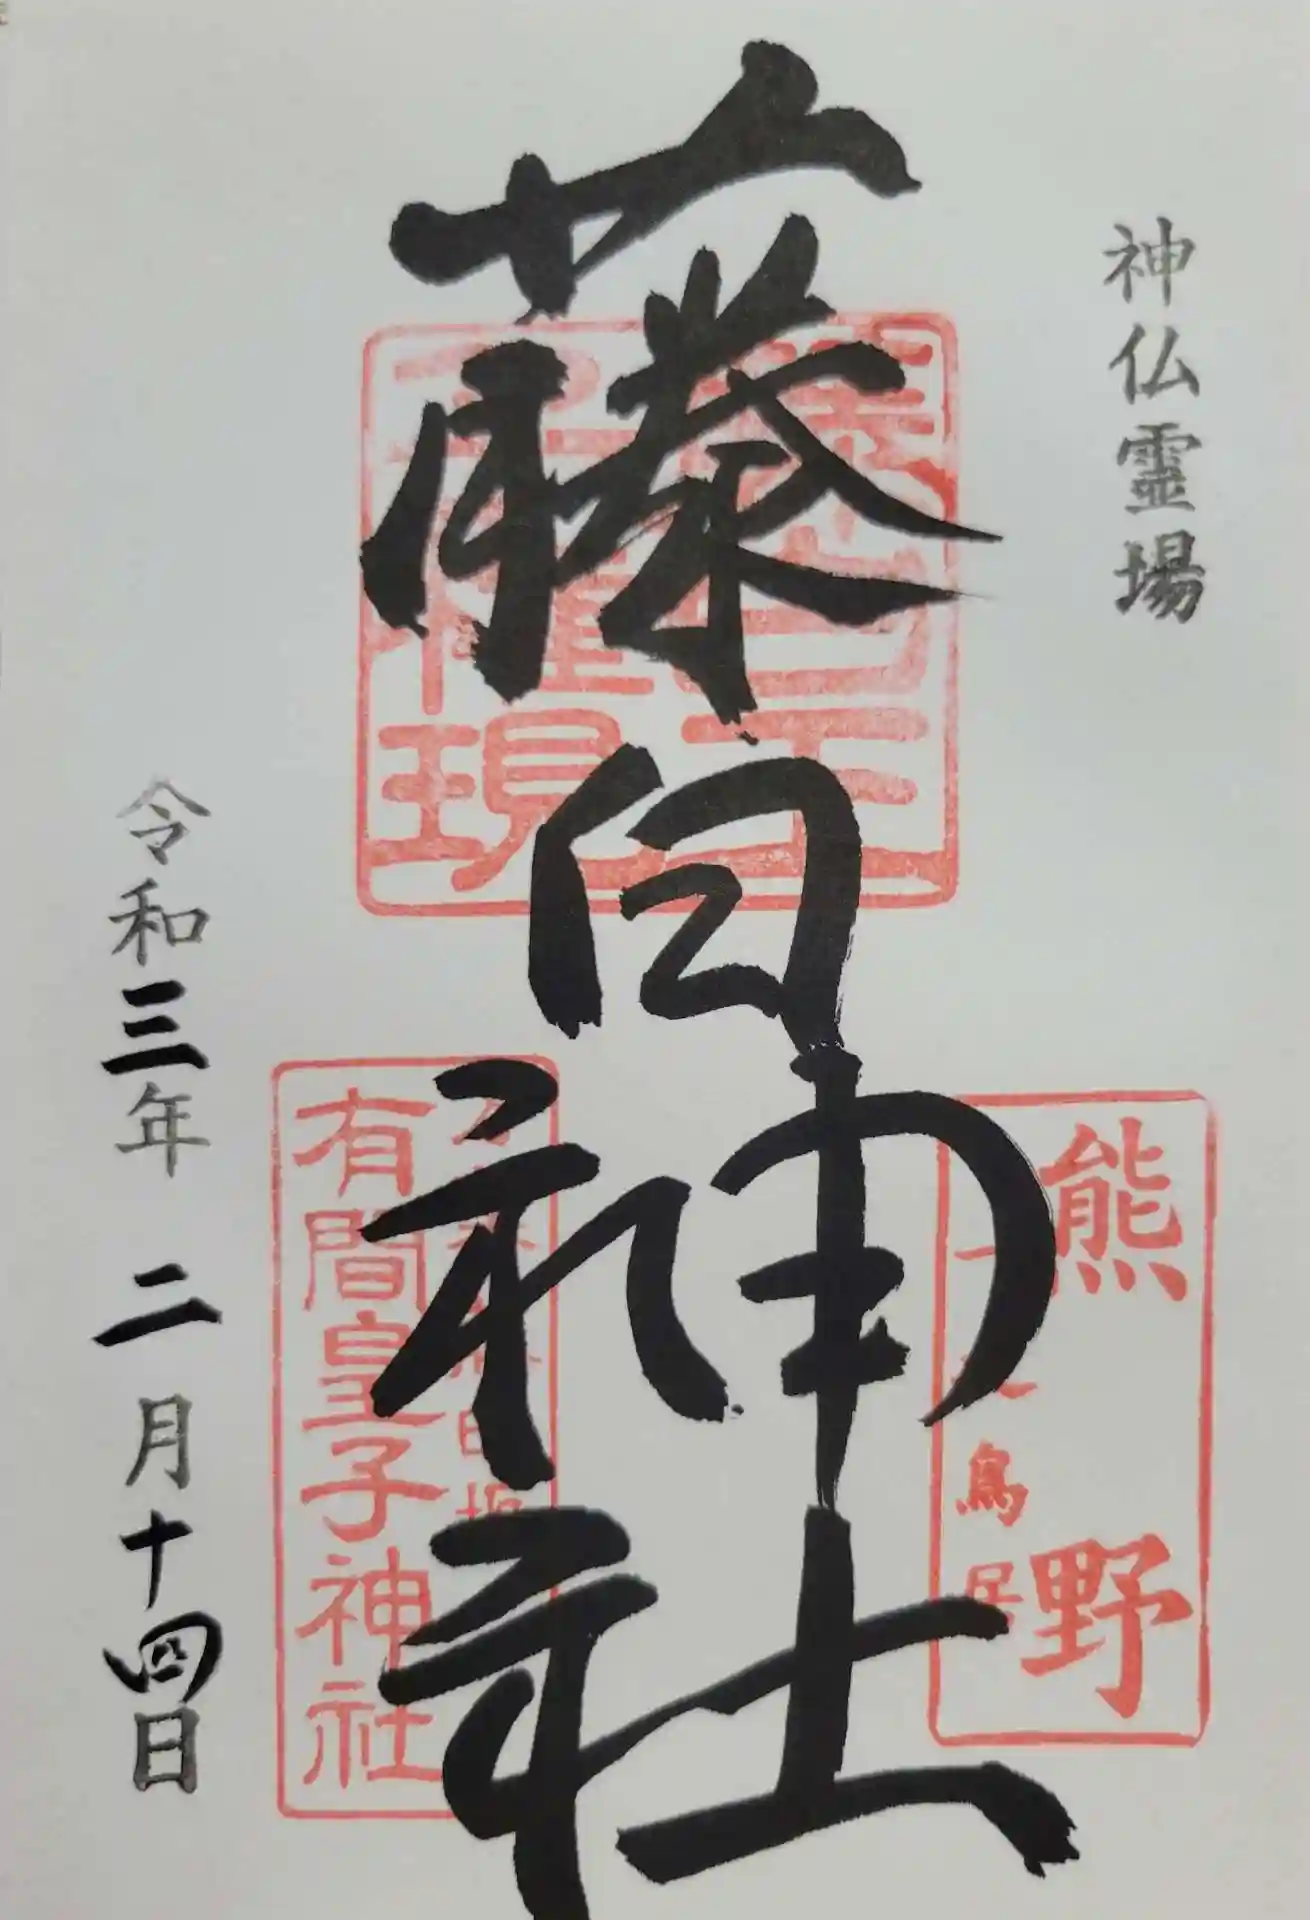 神仏霊場
藤白神社
熊野
一之鳥居
有間皇子神社
令和三年 二月十四日